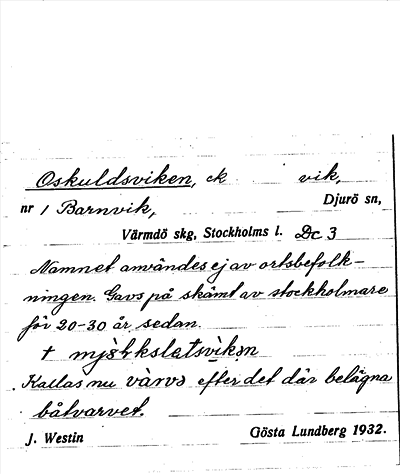 Oskuldsviken, ck vik,
nr 1 Barnvik, Djurö sn,
Värmdö skg, Stockholms l. Dc 3
Namnet användes ej av ortsbefolk-
ningen. Gavs på skämt av stockholmare
för 20-30 år sedan.
Kallas nu varvə efter det där belägna
båtvarvet.
J. Westin Gösta Lundberg 1932.